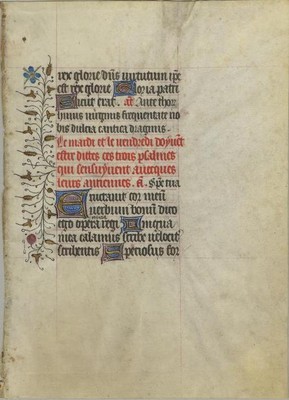 rex glorie dñs virtutum ip̃e
est rex glorie Gloria patri
Sicut erat. añ Ante thor
hujus virginis frequentate no
bis dulcia cantica dragmis.
Le mardi et le vendredi doyuẽt
estre dittes ces trois psalmes
qui sensuyuent auecques
leurs antiennes. a. Specie tua
Eructauit cor meũ
verbum bonũ dico
ego opera regi Lingua
mea calamus scribe velociť
scribentis Speciosus for